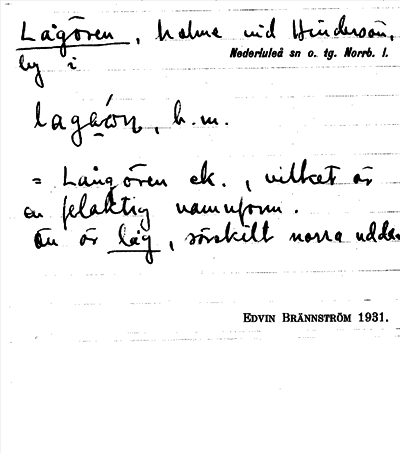 Lågören, holme vid Hindersön,
Nederluleå sn o. tg. Norrb. l.
by i
lagaón, b.m.
= Långören ek., vilket är
en felaktig namnform.
Ön är låg, särskilt norra udden
EDVIN BRÄNNSTRÖM 1931.